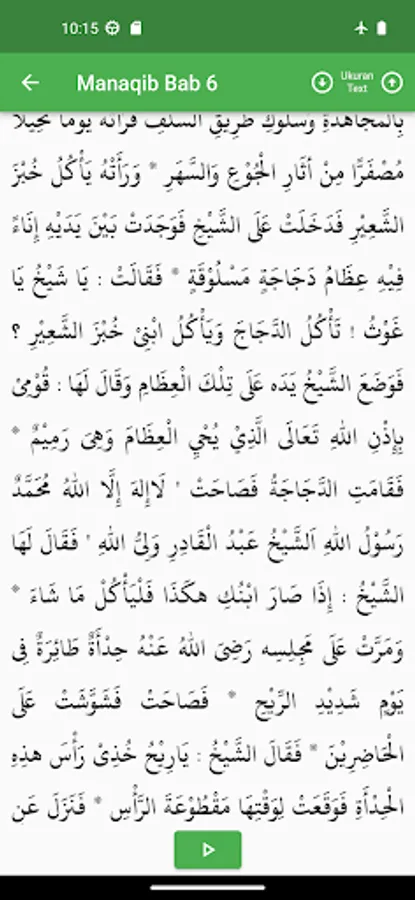 10:15
Manaqib Bab 6
Ukuran
Text
بِالْمُجَاهَدَةِ وَسُلُوْكِ طَرِيْقِ السَّلَفِ فَرَأَتْهُ يَوْمًا نَحِيْلًا
مُصْفَرًّا مِنْ اٰثَارِ الْجُوْعِ وَالسَّهَرِ * وَرَأَتْهُ يَأْكُلُ خُبْزَ
الشَّعِيْرِ فَدَخَلَتْ عَلَى الشَّيْخِ فَوَجَدَتْ بَيْنَ يَدَيْهِ إِنَاءً
فِيْهِ عِظَامُ دَجَاجَةٍ مَسْلُوْقَةٍ * فَقَالَتْ : يَا شَيْخُ يَا
غَوْثُ ! تَأْكُلُ الدَّجَاجَ وَيَأْكُلُ ابْنِيْ خُبْزَ الشَّعِيْرِ ؟
فَوَضَعَ الشَّيْخُ يَدَه عَلَى تِلْكَ الْعِظَامِ وَقَالَ لَهَا : قُوْمِيْ
بِإِذْنِ اللهِ تَعَالَى الَّذِيْ يُحْيِ الْعِظَامَ وَهِيَ رَمِيْمٌ *
فَقَامَتِ الدَّجَاجَةُ فَصَاحَتْ ' لَاإِلهَ إِلَّا اللهُ مُحَمَّدٌ
رَسُوْلُ اللهِ اَلشَّيْخُ عَبْدُ الْقَادِرِ وَلِيُّ اللهِ ' فَقَالَ لَهَا
الشَّيْخُ : إِذَا صَارَ ابْنُكِ هكَذَا فَلْيَأْكُلْ مَا شَاءَ *
وَمَرَّتْ عَلَى مَجْلِسِه رَضِيَ اللهُ عَنْهُ حِدْأَةٌ طَائِرَةٌ فِي
يَوْمٍ شَدِيْدِ الرِّيْحِ * فَصَاحَتْ فَشَوَّشَتْ عَلَى
الْحَاضِرِيْنَ * فَقَالَ الشَّيْخُ : يَارِيْحُ خُذِيْ رَأْسَ هذِهِ
الْحِدْأَةِ فَوَقَعَتْ لِوَقْتِهَا مَقْطُوْعَةَ الرَّأْسِ * فَنَزَلَ عَنِ